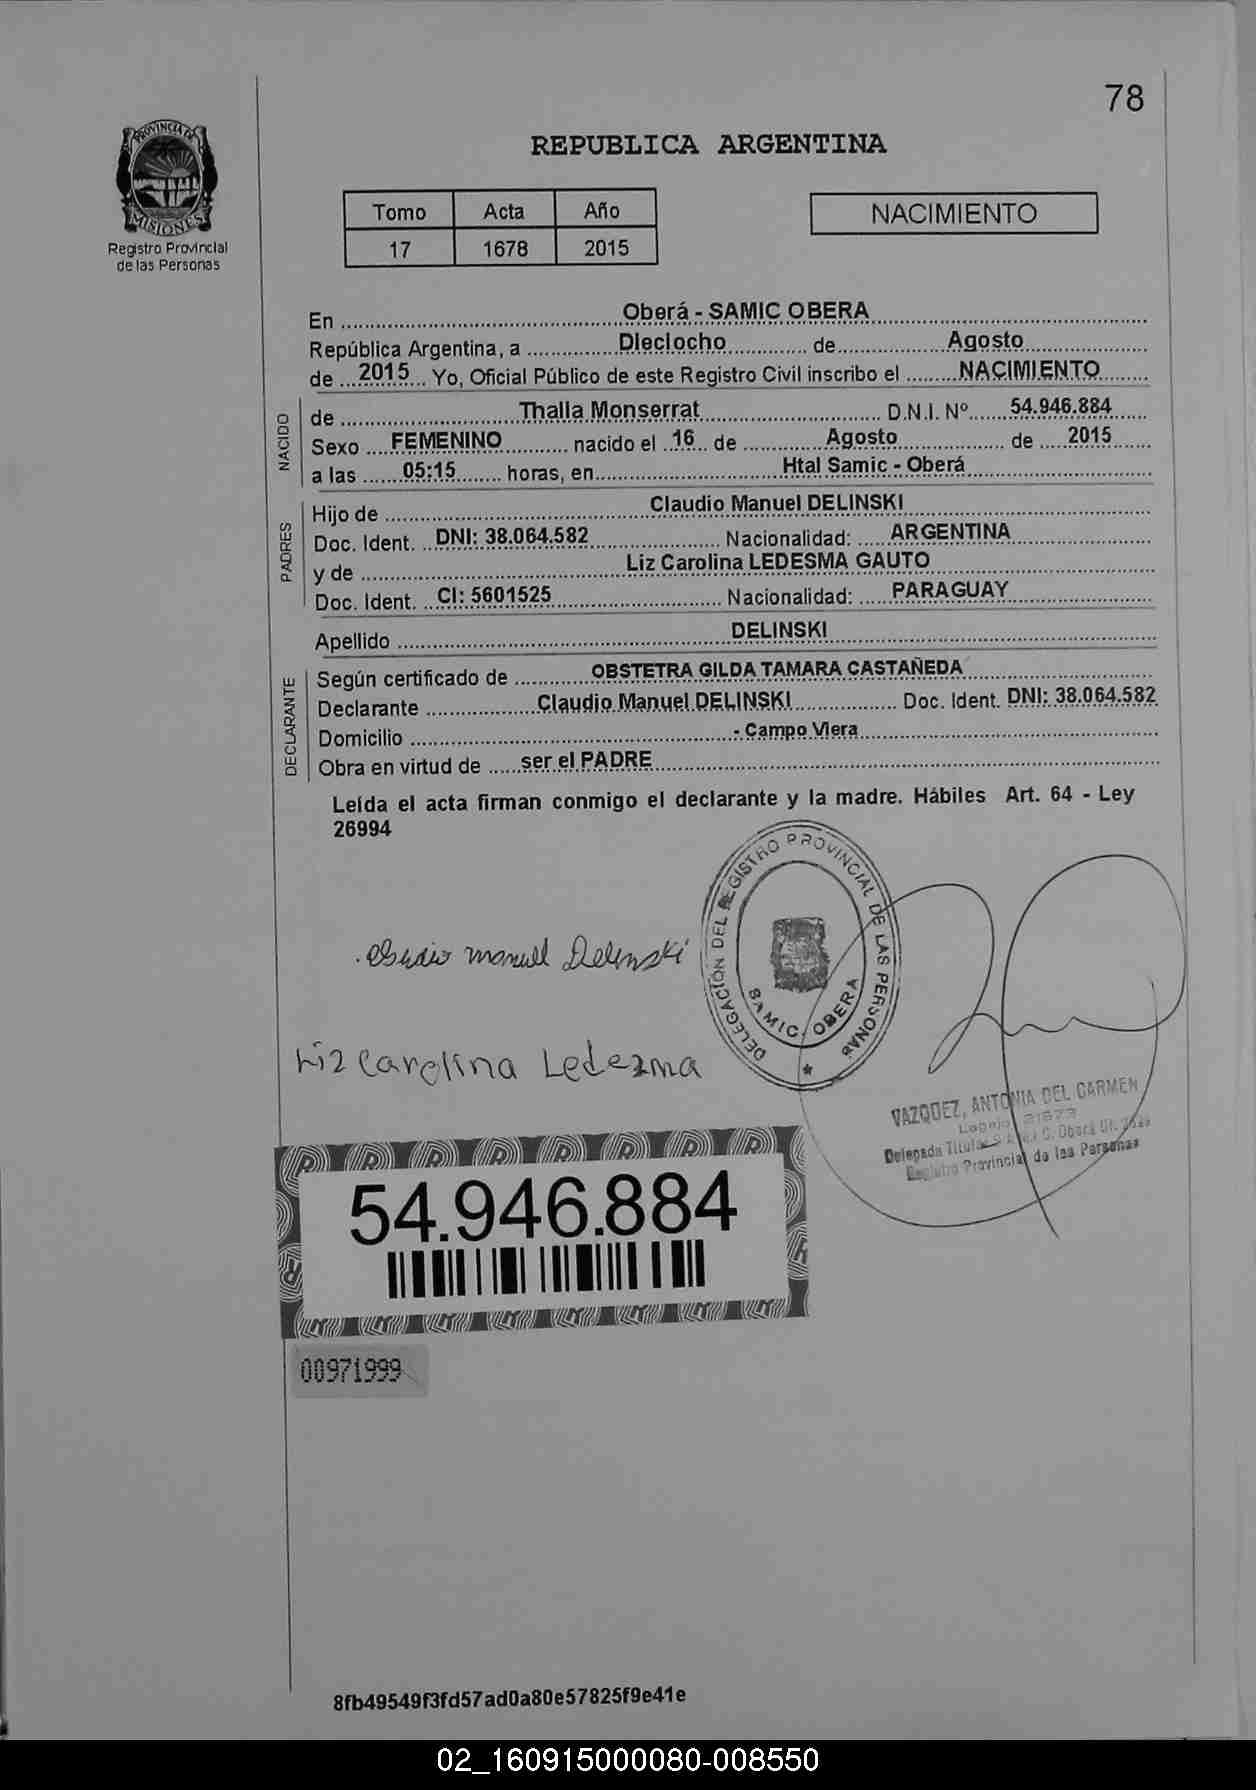 78
PROVINCIA DE
MISIONES
Registro Provincial
de las Personas
REPUBLICA ARGENTINA
Tomo Acta Año
17 1678 2015
NACIMIENTO
En Oberá - SAMIC OBERA
República Argentina, a Dieciocho de Agosto
de 2015 Yo, Oficial Público de este Registro Civil inscribo el NACIMIENTO
NACIDO
de Thalia Monserrat D.N.I. Nº 54.946.884
Sexo FEMENINO nacido el 16 de Agosto de 2015
a las 05:15 horas, en Htal Samic - Oberá
PADRES
Hijo de Claudio Manuel DELINSKI
Doc. Ident. DNI: 38.064.582 Nacionalidad: ARGENTINA
y de Liz Carolina LEDESMA GAUTO
Doc. Ident. CI: 5601525 Nacionalidad: PARAGUAY
Apellido DELINSKI
DECLARANTE
Según certificado de OBSTETRA GILDA TAMARA CASTAÑEDA
Declarante Claudio Manuel DELINSKI Doc. Ident. DNI: 38.064.582
Domicilio - Campo Viera
Obra en virtud de ser el PADRE
Leída el acta firman conmigo el declarante y la madre. Hábiles Art. 64 - Ley
26994
DELEGACIÓN DEL REGISTRO PROVINCIAL DE LAS PERSONAS
SAMIC. OBERA
Claudio Manuel Delinski
Liz Carolina Ledezma
VAZQUEZ, ANTONIA DEL CARMEN
Delegada Titular
Registro Provincial de las Personas
54.946.884
00971999
8fb49549f3fd57ad0a80e57825f9e41e
02_160915000080-008550